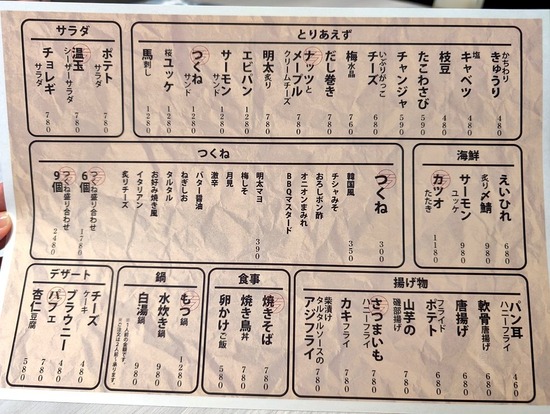 サラダ
ポテトサラダ 780
温玉シーザーサラダ 780
チョレギサラダ 780
とりあえず
かちわりきゅうり 480
塩キャベツ 480
枝豆 480
たこわさび 590
チャンジャ 590
いぶりがっこチーズ 680
梅水晶 760
だし巻き 780
ナッツとメープルクリームチーズ 780
明太炙り 780
エビパン 1280
サーモンサンド 1280
つくねサンド 1280
桜ユッケ 1280
馬刺し 1280
つくね
つくね 300
韓国風 350
チシャみそ
おろしポン酢
オニオンまみれ
BBQマスタード
明太マヨ 390
梅しそ
月見
激辛
バター醤油
ねぎしお
タルタル
お好み焼き風
イタリアン
炙りチーズ
つくね盛り合わせ6個 1780
つくね盛り合わせ9個 2480
海鮮
えいひれ 680
炙り〆鯖 980
サーモンユッケ 980
カツオたたき 1180
デザート
チーズケーキ 480
ブラウニー 480
パフェ 780
杏仁豆腐 580
鍋
もつ鍋 1280
水炊き鍋 980
白湯鍋 980
食事
焼きそば 780
焼き鳥丼 780
卵かけご飯 580
揚げ物
パン耳ハニーフライ 460
軟骨唐揚げ 680
唐揚げ 680
フライドポテト 680
山芋の磯部揚げ 780
さつまいもハニーフライ 780
カキフライ 780
柴漬けタルタルソースのアジフライ 780